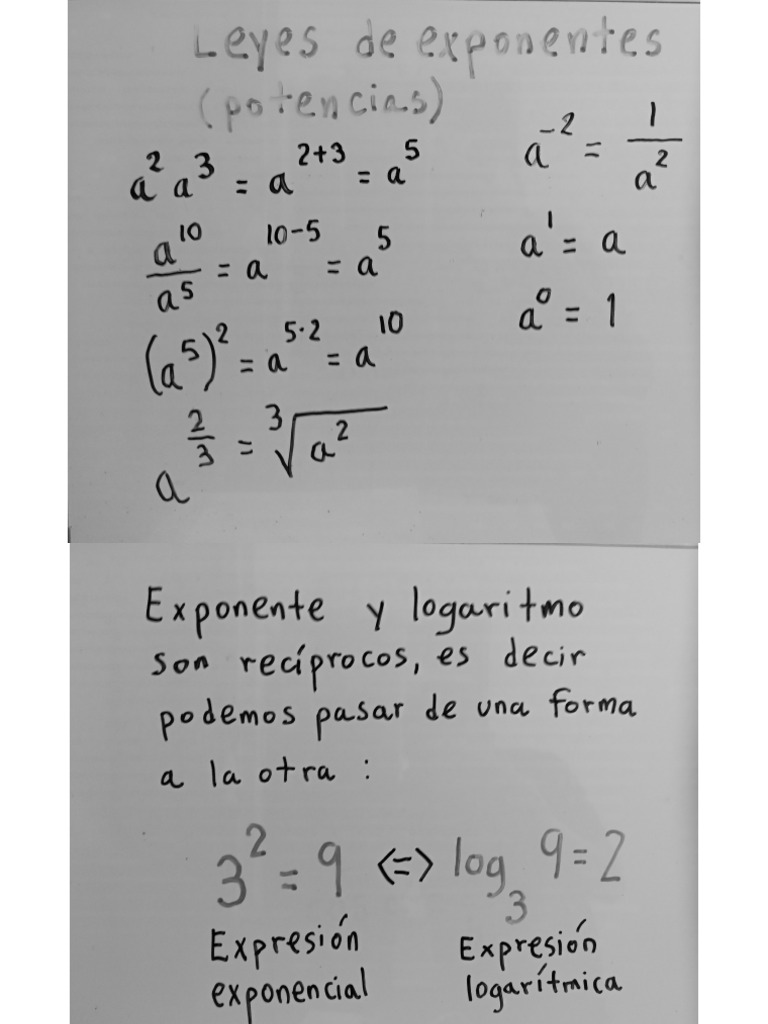 Leyes de exponentes
(potencias)
a² a³ = a²⁺³ = a⁵
a¹⁰/a⁵ = a¹⁰⁻⁵ = a⁵
(a⁵)² = a⁵·² = a¹⁰
a^(2/3) = ³√a²
a⁻² = 1/a²
a¹ = a
a⁰ = 1
Exponente y logaritmo
son recíprocos, es decir
podemos pasar de una forma
a la otra :
3² = 9 <=> log₃ 9 = 2
Expresión exponencial
Expresión logarítmica